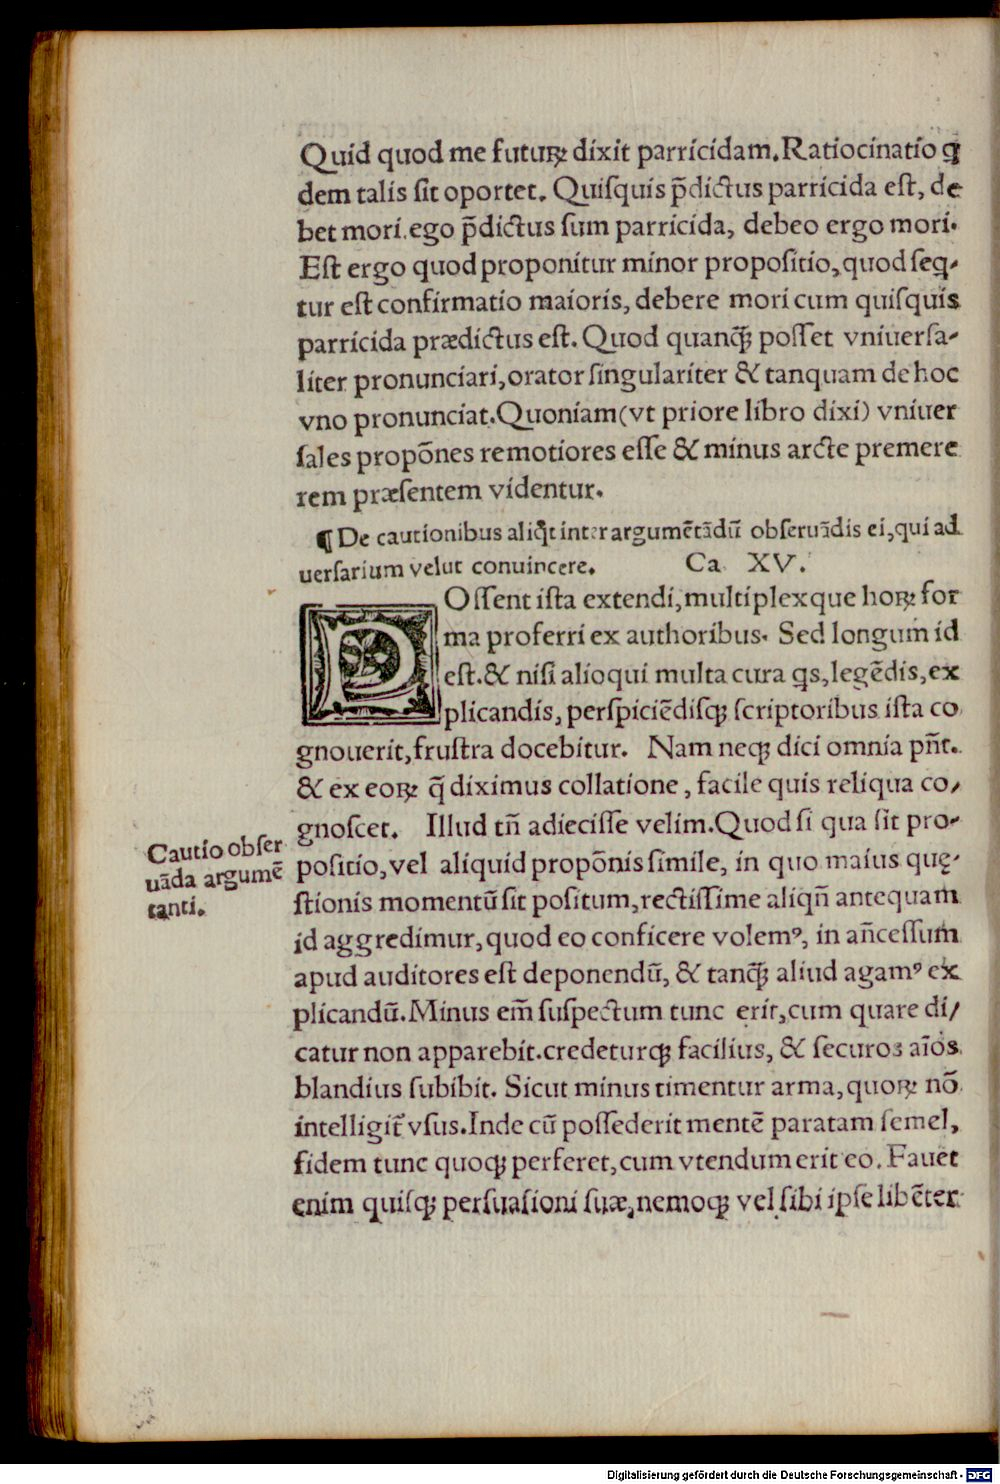 Quid quod me futuꝝ dixit parricidam.Ratiocinatio q̄
dem talis sit oportet. Quiſquis p̄dictus parricida eſt, de
bet mori.ego p̄dictus ſum parricida, debeo ergo mori.
Eſt ergo quod proponitur minor propoſitio,quod ſeq̄-
tur eſt confirmatio maioris, debere mori cum quiſquis
parricida prædictus eſt. Quod quanꝙ̃ poſſet vniuerſa-
liter pronunciari,orator ſingulariter & tanquam de hoc
vno pronunciat.Quoniam(vt priore libro dixi) vniuer
ſales propōnes remotiores eſſe & minus arcte premere
rem præſentem videntur.
¶ De cautionibus aliq̄t inter argumētādū obſeruādis ei,qui ad
uerſarium velut conuincere. Ca XV.
POſſent iſta extendi,multiplexque hoꝝ for
ma proferri ex authoribus. Sed longum id
eſt.& niſi alioqui multa cura q̄s,legēdis,ex
plicandis, perſpiciēdiſq; ſcriptoribus iſta co
gnouerit,fruſtra docebitur. Nam neq; dici omnia pn̄t.
& ex eoꝝ q̄ diximus collatione, facile quis reliqua co-
gnoſcet. Illud tn̄ adieciſſe velim.Quod ſi qua ſit pro-
poſitio,vel aliquid propōnis ſimile, in quo maius quę-
ſtionis momentū ſit poſitum,rectiſſime aliqn̄ antequam
id aggredimur,quod eo conficere volemꝰ, in an̄ceſſum
apud auditores eſt deponendū, & tanꝙ̃ aliud agamꝰ ex
plicandū.Minus em̄ ſuſpectum tunc erit,cum quare di-
catur non apparebit.credeturq; facilius, & ſecuros aīos
blandius ſubibit. Sicut minus timentur arma,quoꝝ nō
intelligit̃ vſus.Inde cū poſſederit mentē paratam ſemel,
fidem tunc quoq; perferet,cum vtendum erit eo. Fauet
enim quiſq; perſuaſioni ſuæ,nemoq; vel ſibi ipſe libēter
Cautio obſer
uāda argumē
tanti.
Digitalisierung gefördert durch die Deutsche Forschungsgemeinschaft - DFG